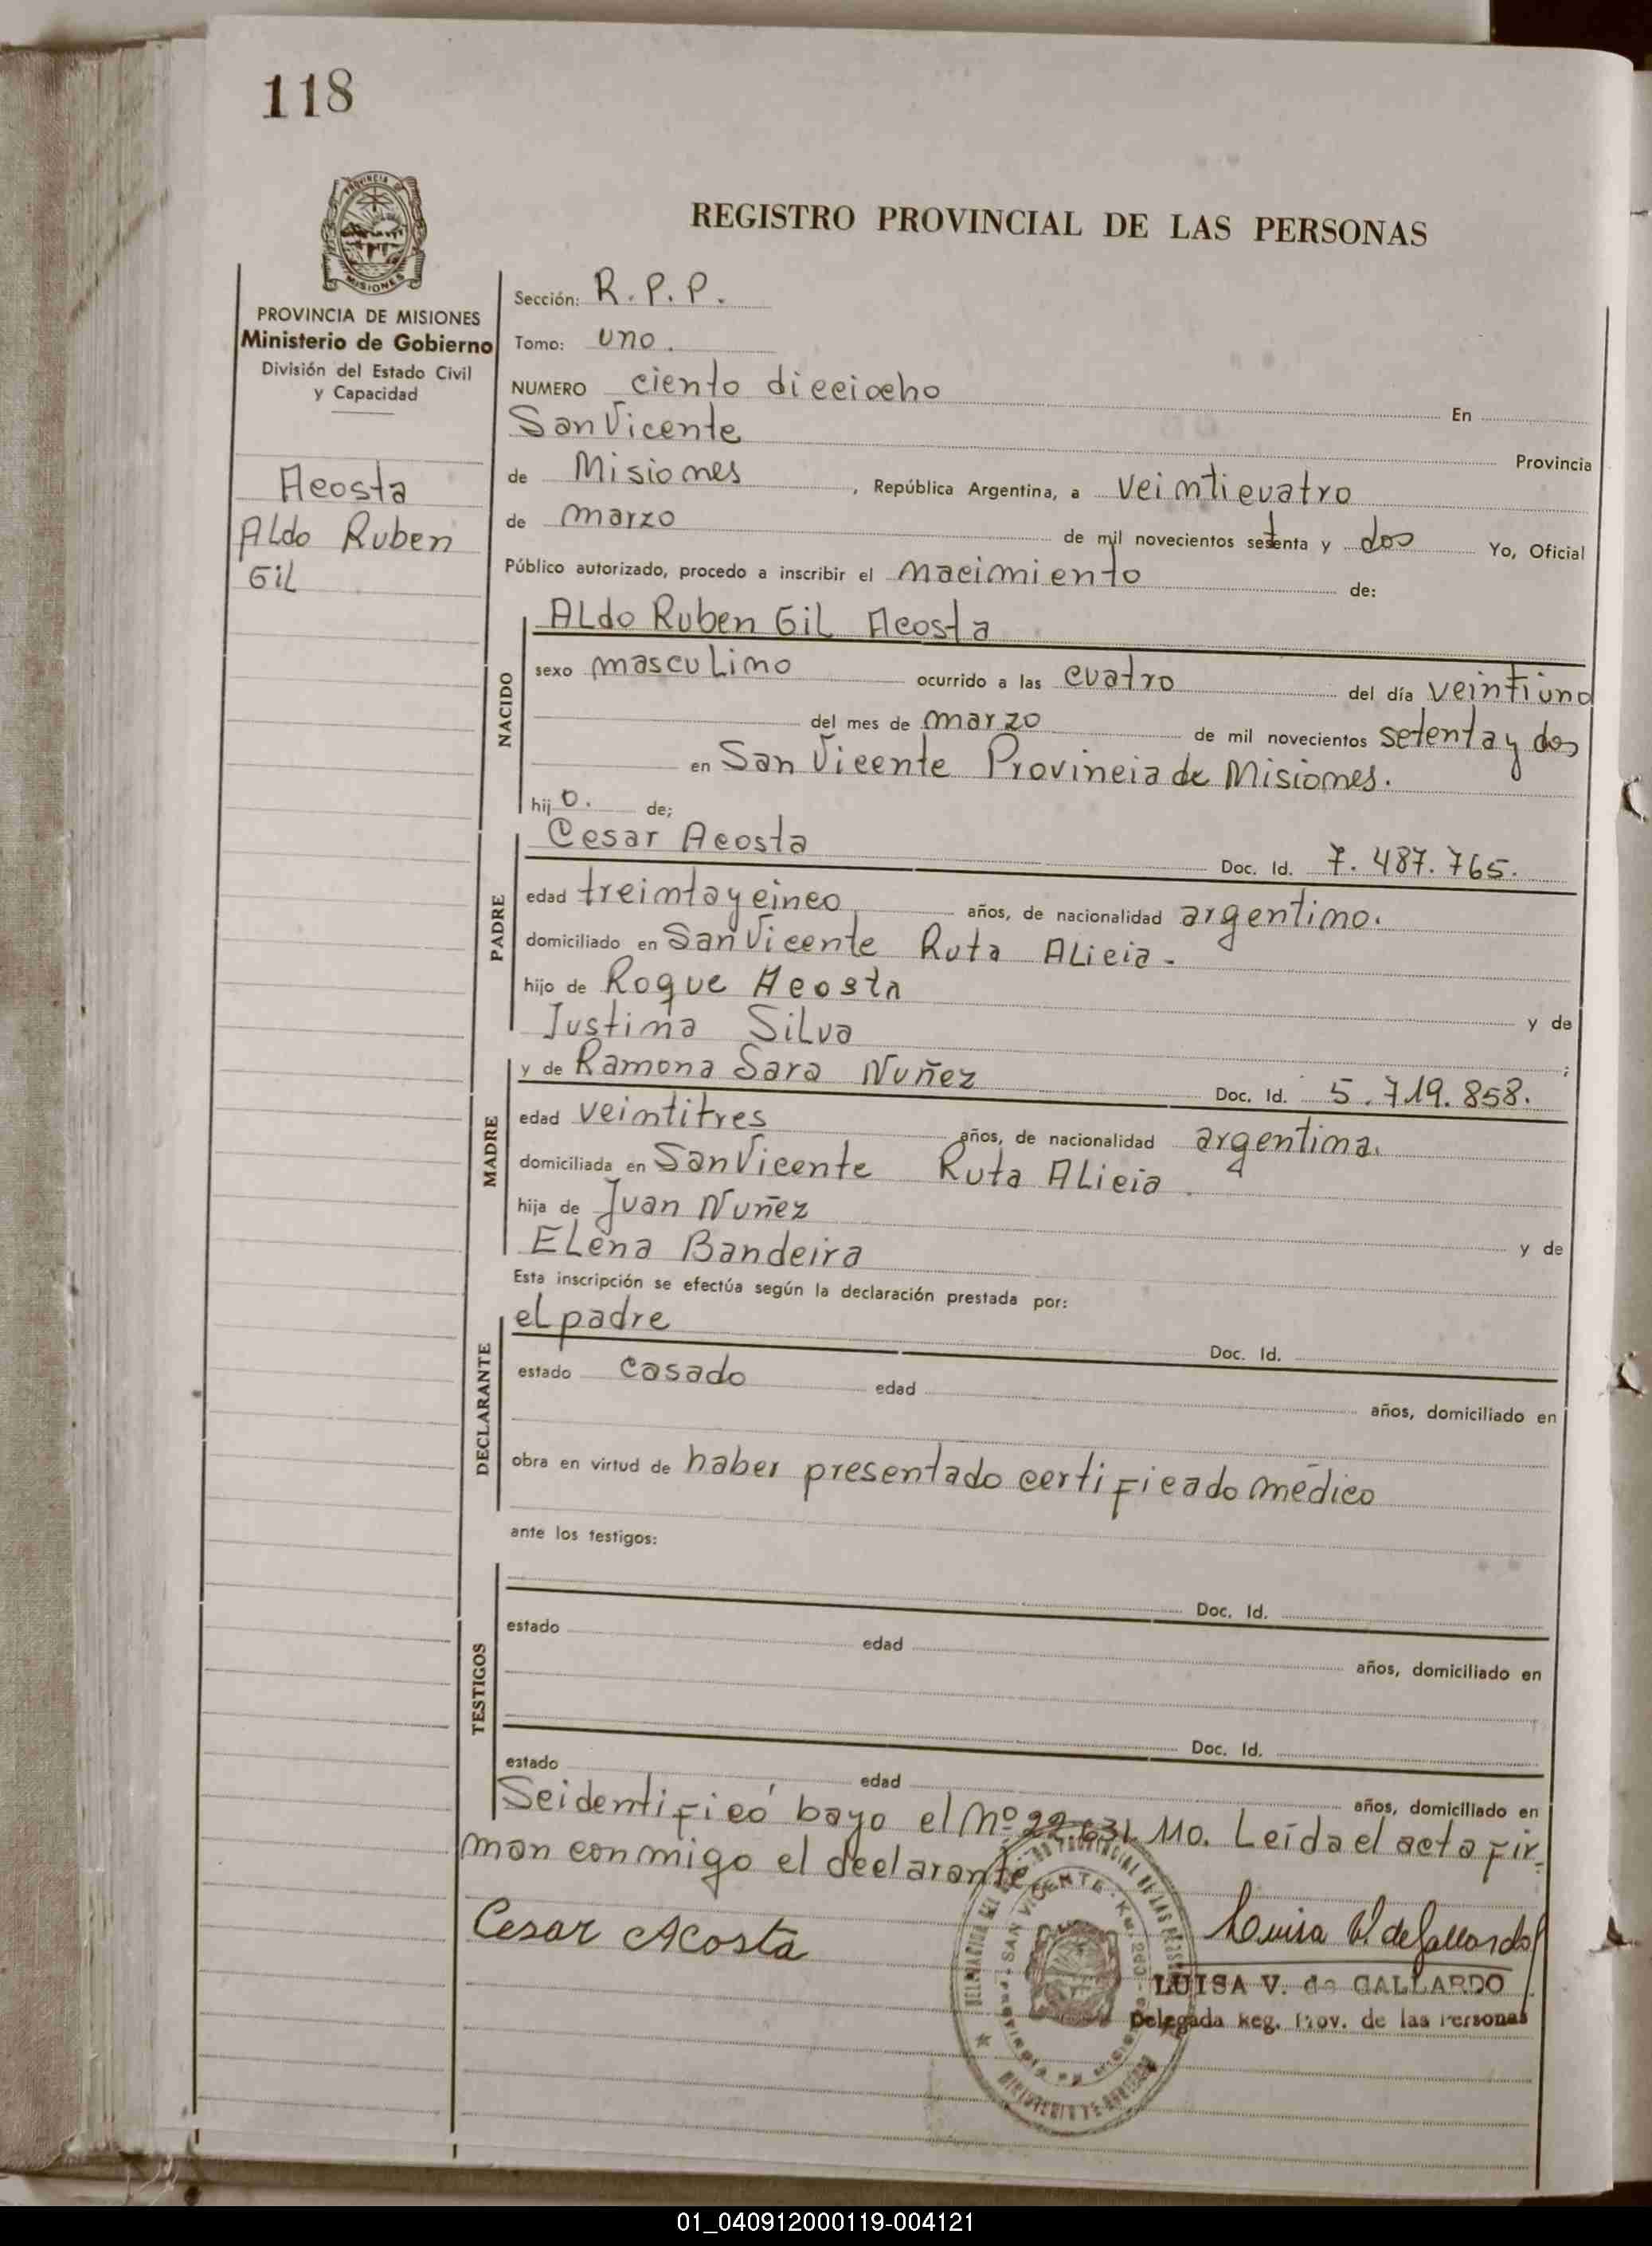 118
PROVINCIA DE
MISIONES
REGISTRO PROVINCIAL DE LAS PERSONAS
PROVINCIA DE MISIONES
Ministerio de Gobierno
División del Estado Civil
y Capacidad
Acosta
Aldo Ruben
Gil
Sección: R.P.P.
Tomo: uno.
NUMERO ciento dieciocho En
San Vicente Provincia
de Misiones, República Argentina, a veinticuatro
de marzo de mil novecientos setenta y dos Yo, Oficial
Público autorizado, procedo a inscribir el nacimiento de:
NACIDO
Aldo Ruben Gil Acosta
sexo masculino ocurrido a las cuatro del día veintiuno
del mes de marzo de mil novecientos setenta y dos
en San Vicente Provincia de Misiones.
hijo. de;
PADRE
Cesar Acosta Doc. Id. 7.487.765.
edad treinta y cinco años, de nacionalidad argentino.
domiciliado en San Vicente Ruta Alicia -
hijo de Roque Acosta y de
Justina Silva ;
MADRE
y de Ramona Sara Nuñez Doc. Id. 5.719.858.
edad veintitres años, de nacionalidad argentina.
domiciliada en San Vicente Ruta Alicia.
hija de Juan Nuñez y de
Elena Bandeira
Esta inscripción se efectúa según la declaración prestada por:
DECLARANTE
el padre Doc. Id.
estado casado edad años, domiciliado en
obra en virtud de haber presentado certificado médico
ante los testigos:
TESTIGOS
Doc. Id.
estado edad años, domiciliado en
Doc. Id.
estado edad años, domiciliado en
Se identificó bayo el Nº 22.631.110. Leída el acta fir-
man conmigo el declarante.
Cesar Acosta
Luisa V. de Gallardo
LUISA V. de GALLARDO
Delegada Reg. Prov. de las Personas
SAN VICENTE
01_040912000119-004121